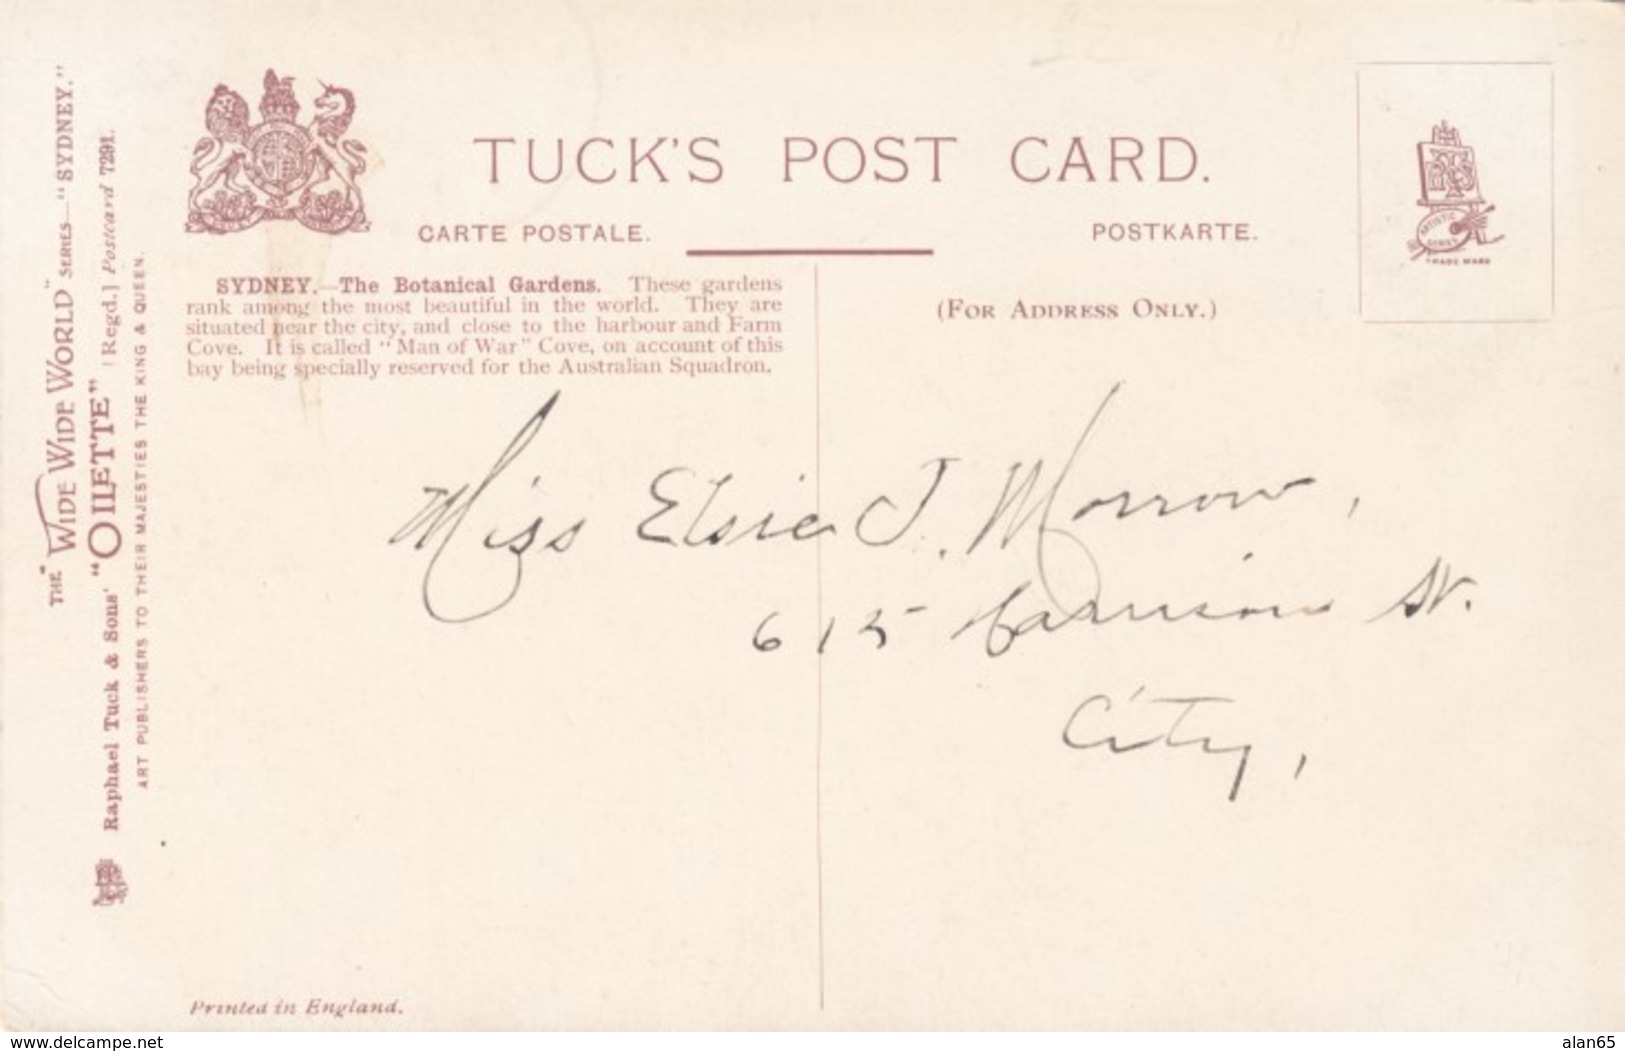 THE "WIDE WIDE WORLD" SERIES—"SYDNEY."
Raphael Tuck & Sons' "OILETTE" [Regd.] Postcard 7291.
ART PUBLISHERS TO THEIR MAJESTIES THE KING & QUEEN.
TUCK'S POST CARD.
CARTE POSTALE.
POSTKARTE.
ARTISTIC
SERIES
TRADE MARK
SYDNEY.—The Botanical Gardens. These gardens
rank among the most beautiful in the world. They are
situated near the city, and close to the harbour and Farm
Cove. It is called "Man of War" Cove, on account of this
bay being specially reserved for the Australian Squadron.
(FOR ADDRESS ONLY.)
Miss Elsie J. Morrow,
615 Harrison St.
City,
Printed in England.
www.delcampe.net
alan65